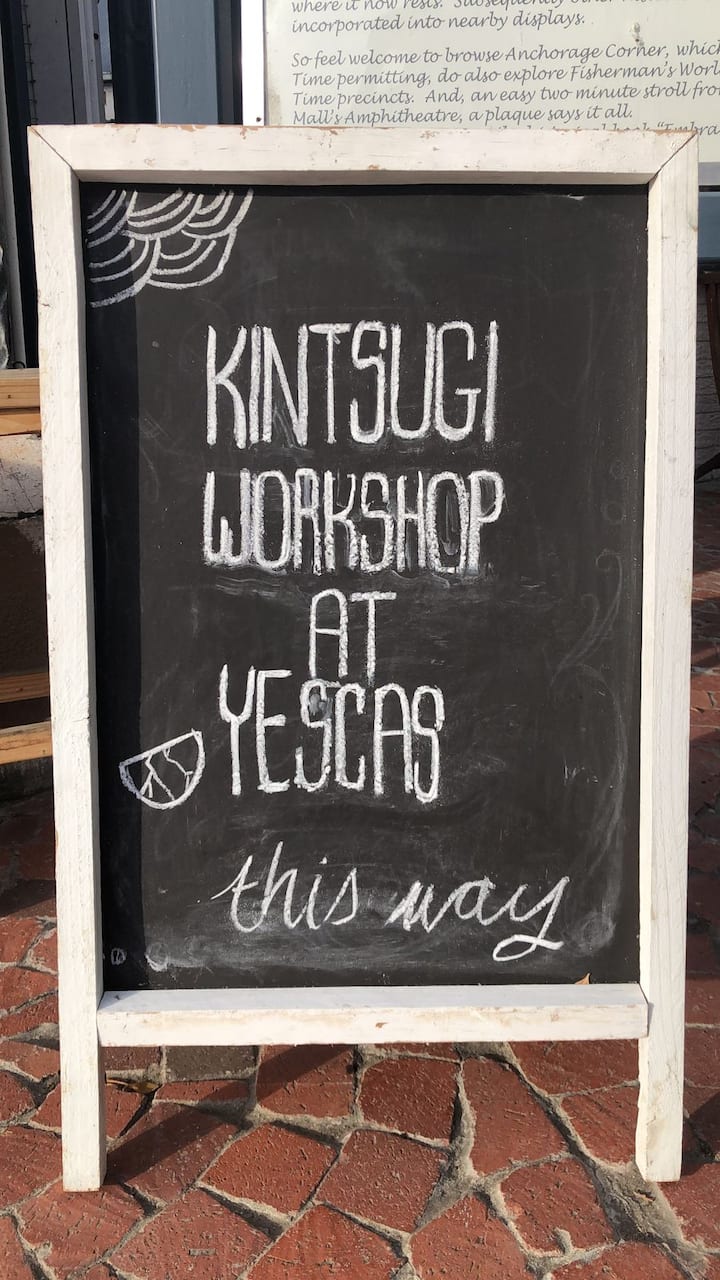 where it now rests. Subsequently other
incorporated into nearby displays.
So feel welcome to browse Anchorage Corner, which
Time permitting, do also explore Fisherman's Worl
Time precincts. And, an easy two minute stroll fro
Mall's Amphitheatre, a plaque says it all.
KINTSUGI
WORKSHOP
AT
YESCAS
this way